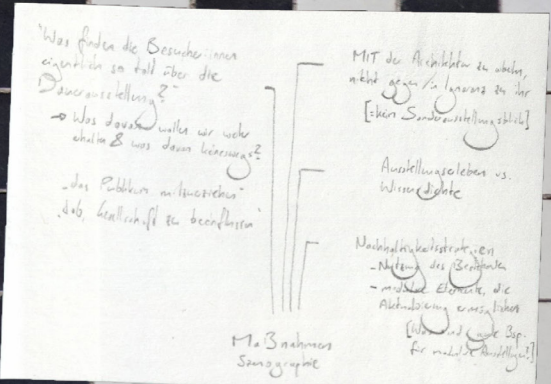 "Was finden die Besucher:innen
eigentlich so toll über die
Dauerausstellung?"
→ Was davon wollen wir
erhalten & was davon keineswegs?
"das Publikum mitzuziehen"
Gesellschaft zu beeinflussen"
MIT der Architektur zu arbeiten,
nicht gegen/in Ignoranz zu ihr
[=kein Sonderausstellungsblick]
Ausstellungserleben vs.
Wissensdichte
Nachhaltigkeitsstrategien
- Nutzung des Bestehenden
- modulare Elemente, die
Aktualisierung ermöglichen
[Was sind gute Bsp.
für modulare Ausstellungen?]
Maßnahmen
Szenographie